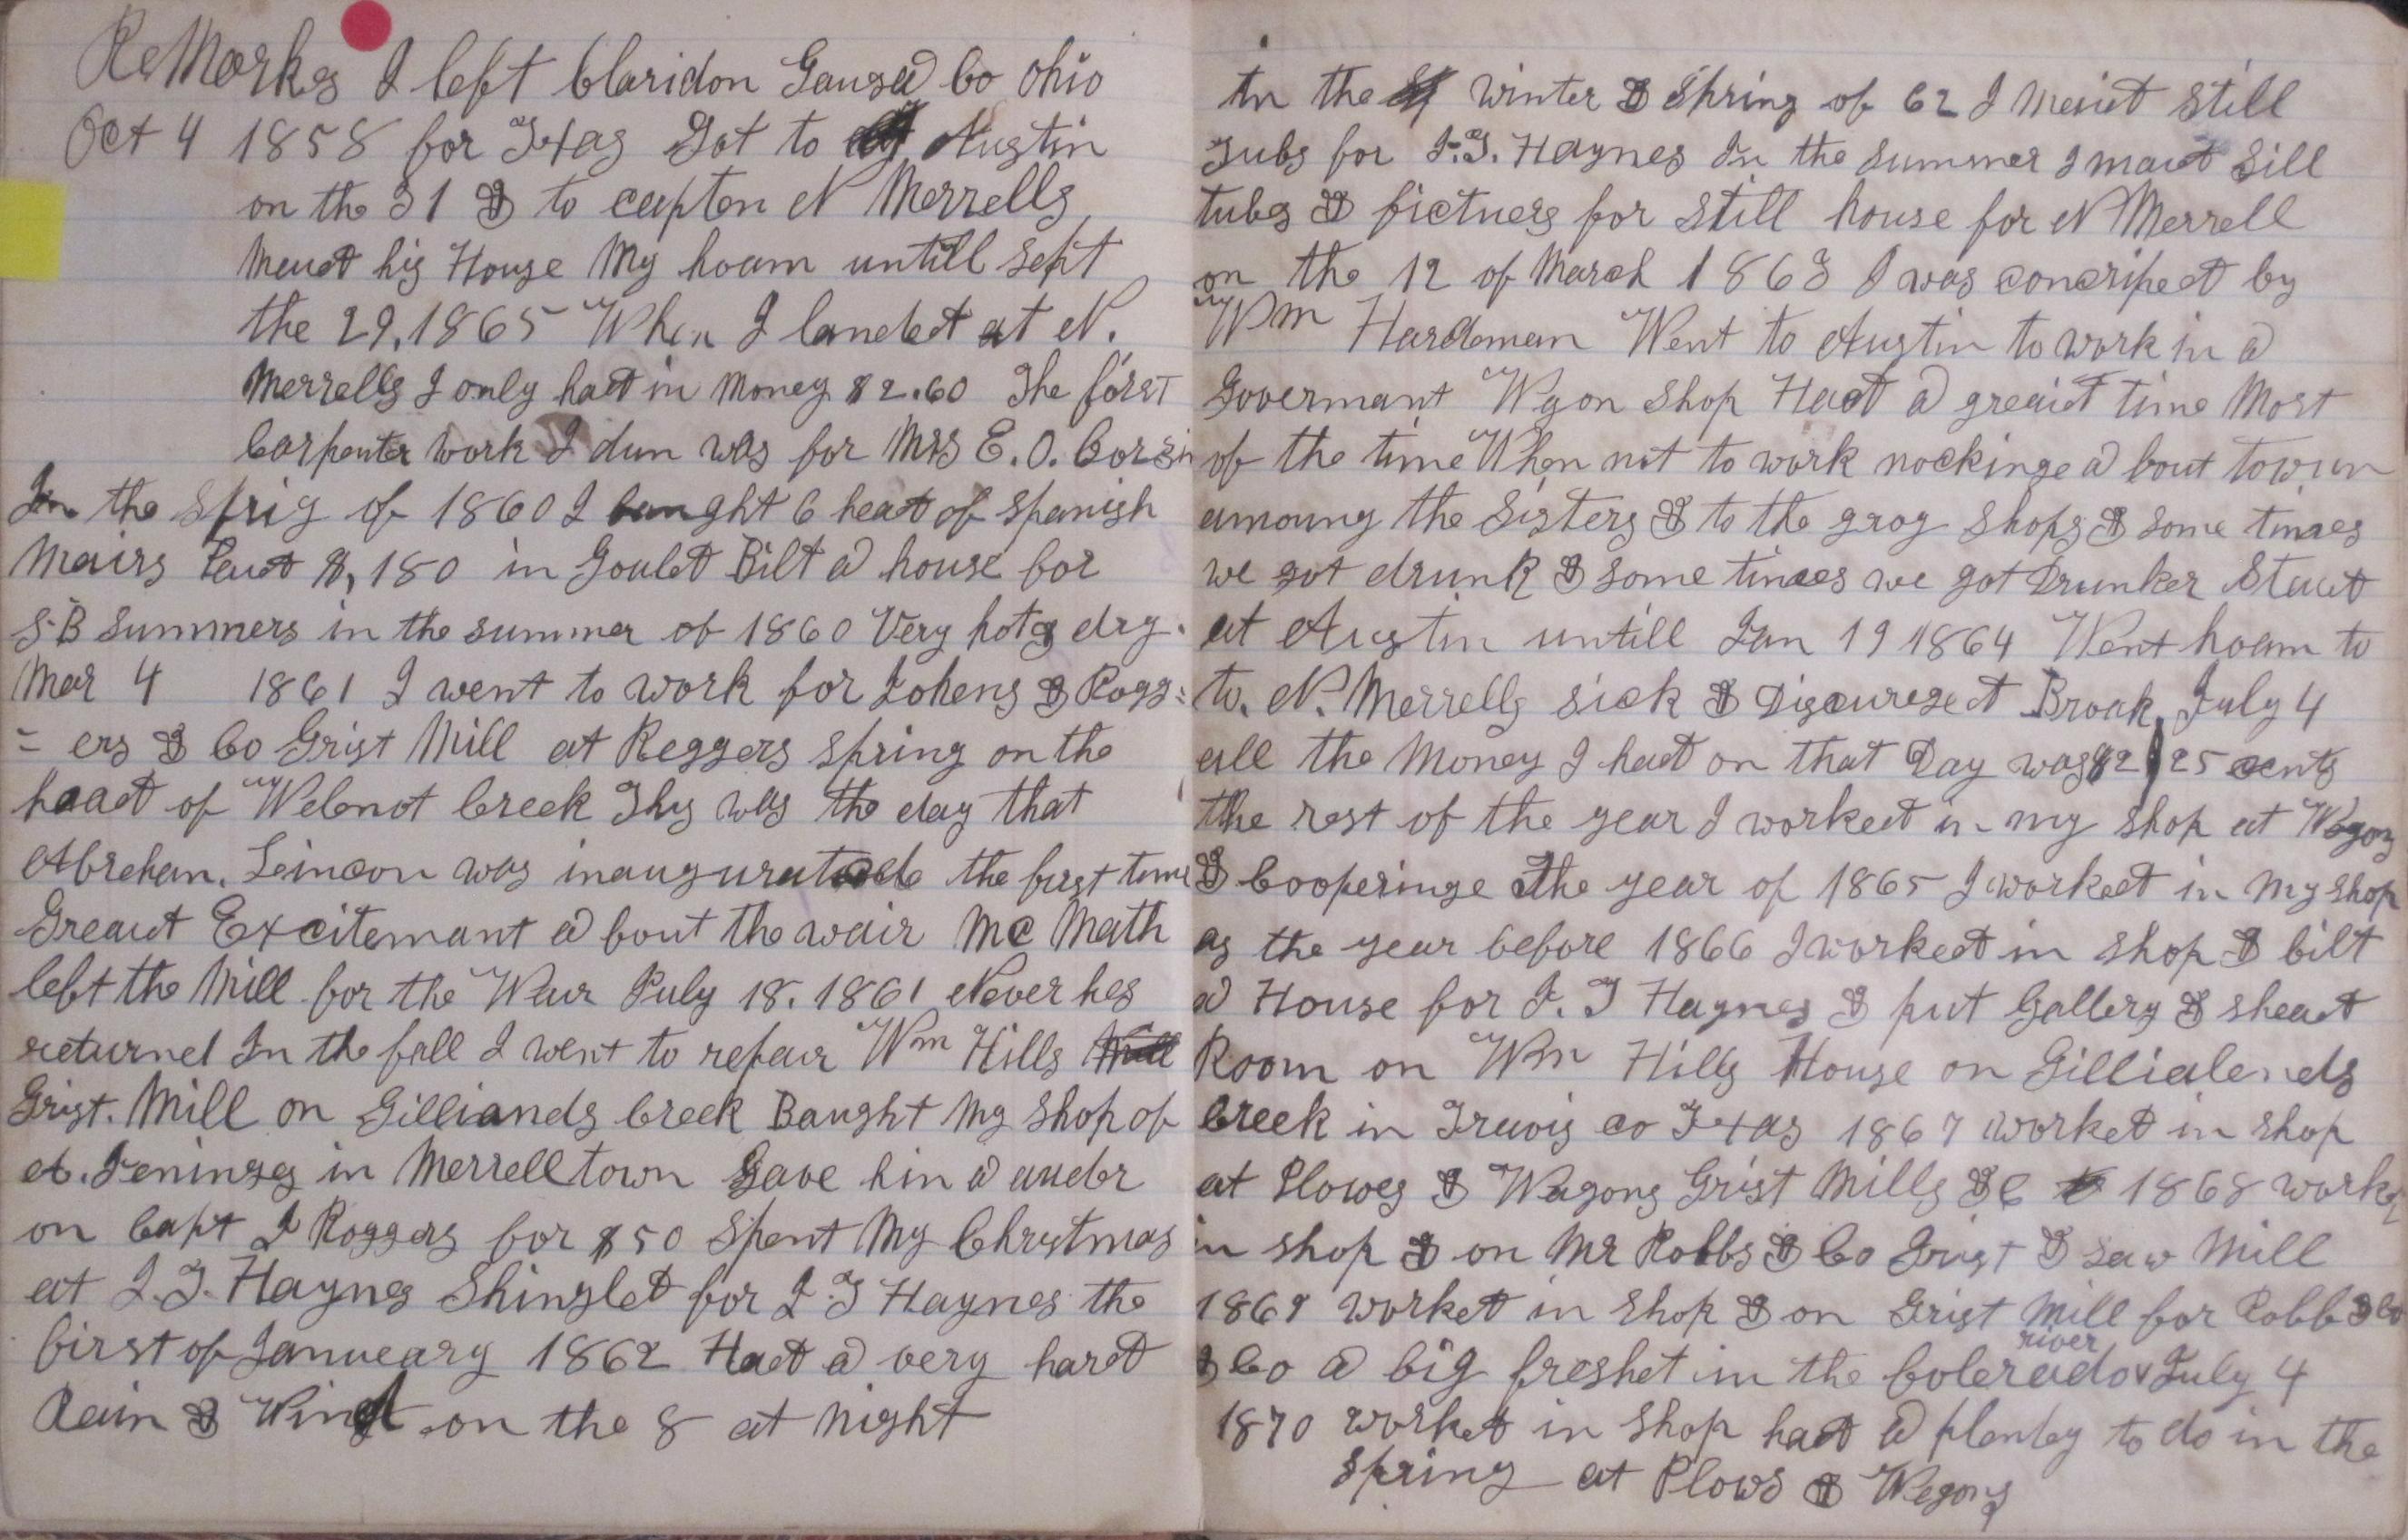 ReMarks I left Claridon Gausa Co Ohio
Oct 4 1858 for Texas Got to Austin
on the 31 & to capten N Merrells
Maid his House My hoam untill Sept
the 29, 1865 When I landed at N.
Merrells I only had in Money $2.60 The first
Carpenter work I dun was for Mrs E. O. Corzin
In the Sprig of 1860 I baught 6 head of Spanish
Mairs Paid $,180 in Gould Bilt a house for
S.B Summers in the summer of 1860 Very hot & dry.
Mar 4 1861 I went to work for Johens & Rogg=
= ers & Co Grist Mill at Reggers Spring on the
haad of Welnot Creek This was the day that
Abreham. Leincon was inaugurated the first time
Greait Excitemant a bout the wair Mc Math
left the Mill for the Waur July 18. 1861 Never hes
returned In the fall I went to repair Wm Hills
Grist. Mill on Gilliands Creek Baught My Shop of
A. Jeninges in Merrelltown Gave him a auder
on Capt J Roggers for $50 Spent My Christmas
at J.J. Haynes Shingled for J.J Haynes the
first of Janueary 1862 Had a very hard
Rain & Wind on the 8 at Night
In the Winter & Spring of 62 I Meaid Still
Tubs for J.J. Haynes In the Summer I maid Sill
tubs & fictuers for Still house for N Merrell
on the 12 of March 1863 I was conscriped by
Wm Hardeman Went to Austin to work in a
Govermant Wgon Shop Had a greaid time Most
of the time When not to work nockinge a bout towun
amoung the Sisters & to the grog Shops & Some times
we got drunk & Some times we got Drunker Staid
at Austin untill Jan 19 1864 Went hoam to
to. N. Merrells Sick & Discureged Broak July 4
all the Money I had on that Day was $2 25 cents
the rest of the year I worked in my Shop at Wagons
& Cooperinge The year of 1865 I worked in My Shop
as the year before 1866 I worked in Shop & bilt
a House for J. J Haynes & put Gallery & Shead
Room on Wm Hills House on Gillialends
Creek in Travis Co Texas 1867 worked in Shop
at Plowes & Wagons Grist Mills &C 1868 work
in Shop & on Mr Robbs & Co Grist & Saw Mill
1869 worked in Shop & on Grist Mill for Robb & Co
& Co a big freshet in the Colerado river July 4
1870 worked in Shop had a plenty to do in the
Spring at Plows & Wegons